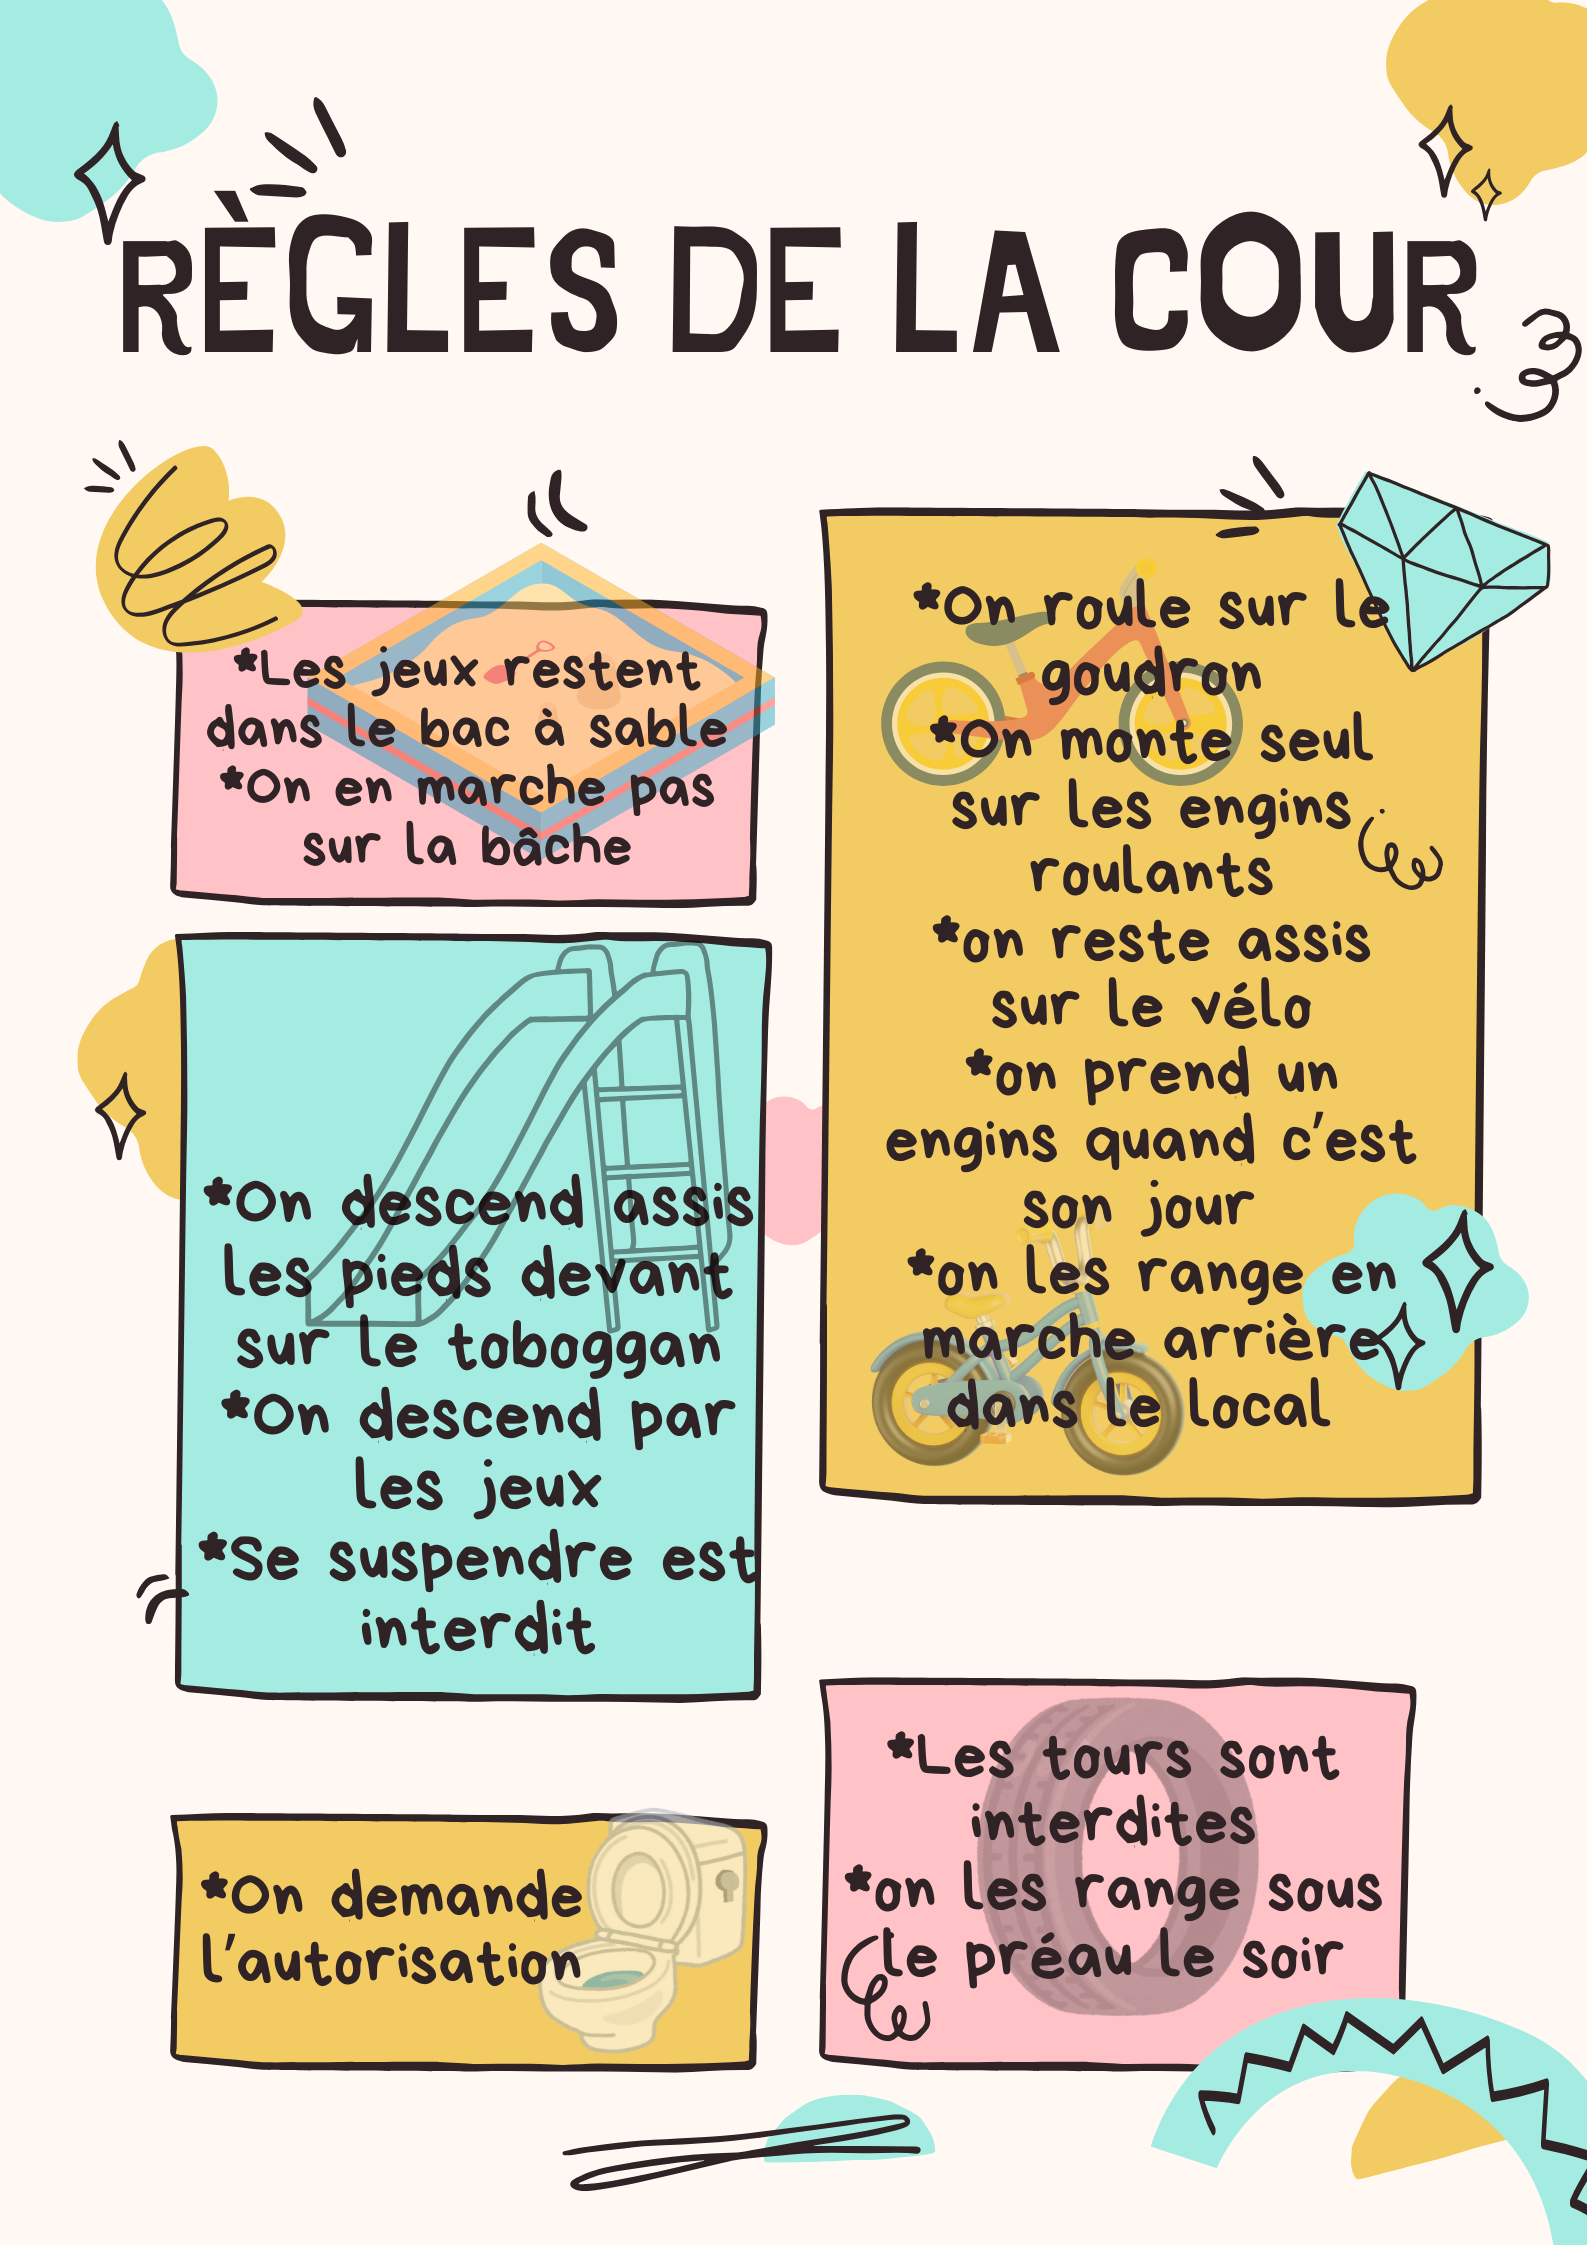 RÈGLES DE LA COUR
*Les jeux restent
dans le bac à sable
*On en marche pas
sur la bâche
*On descend assis
les pieds devant
sur le toboggan
*On descend par
les jeux
*Se suspendre est
interdit
*On demande
l'autorisation
*On roule sur le
goudron
*On monte seul
sur les engins
roulants
*on reste assis
sur le vélo
*on prend un
engins quand c'est
son jour
*on les range en
marche arrière
dans le local
*Les tours sont
interdites
*on les range sous
le préau le soir